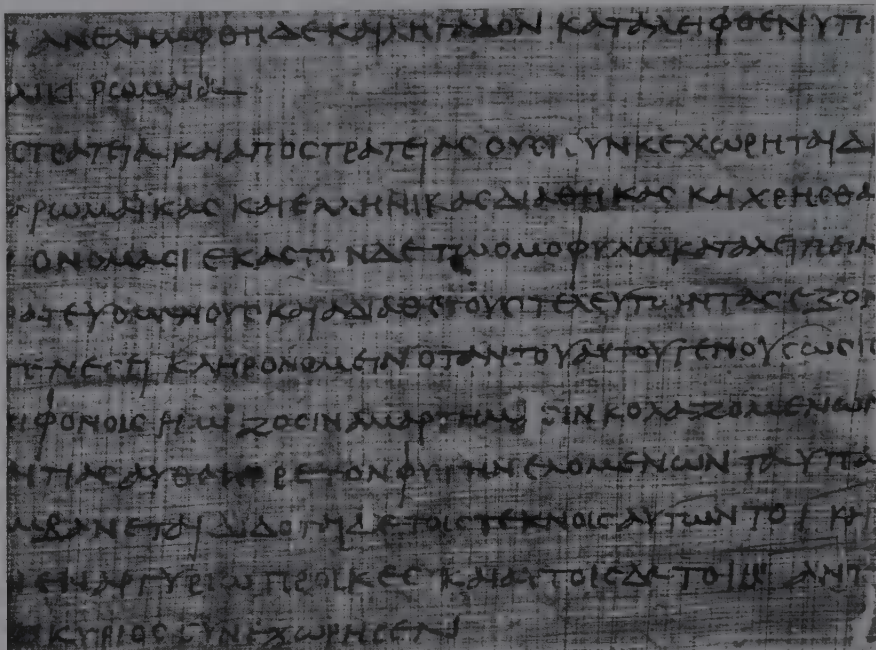 ΑΝΕΛΗΜΦΘΗ ΔΕ ΚΑΙ ΛΗΓΑΔΟΝ ΚΑΤΑΛΕΙΦΘΕΝ ΥΠ
ΡΩΜΑΙΑ
ΣΤΡΑΤΕΙΑ ΚΑΙ ΑΠΟ ΣΤΡΑΤΕΙΑΣ ΟΥΣΙ ΣΥΝΚΕΧΩΡΗΤΑΙ ΔΙ
ΡΩΜΑΙΚΑΣ ΚΑΙ ΕΛΛΗΝΙΚΑΣ ΔΙΑΘΗΚΑΣ ΚΑΙ ΧΡΗΣΘΑ
ΟΝΟΜΑΣΙ ΕΚΑΣΤΟΝ ΔΕ ΤΩ ΟΜΟΦΥΛΩ ΚΑΤΑΛΕΙΠΕΙΝ
ΣΤΡΑΤΕΥΟΜΕΝΟΥΣ ΚΑΙ ΑΔΙΑΘΕΤΟΥΣ ΤΕΛΕΥΤΩΝΤΑΣ ΕΞΟΝ
ΚΛΗΡΟΝΟΜΕΙΝ ΟΤΑΝ ΤΟΥ ΑΥΤΟΥ ΓΕΝΟΥΣ ΩΣΙ
ΦΟΝΟΙΣ Η ΜΙΖΟΣΙΝ ΑΜΑΡΤΗΜΑΣΙΝ ΚΟΛΑΖΟΜΕΝΩΝ
ΑΥΘΑΙΡΕΤΟΝ ΦΥΓΗΝ ΕΛΟΜΕΝΩΝ ΤΑ ΥΠΑ
ΛΑΜΒΑΝΕΤΑΙ ΔΙΔΟΤΑΙ ΔΕ ΤΟΙΣ ΤΕΚΝΟΙΣ ΑΥΤΩΝ ΤΟ Ι ΚΑΙ
ΕΝ ΑΡΓΥΡΙΩ ΠΡΟΙΚΕΣ ΚΑΙ ΑΥΤΟΙΣ ΔΕ ΤΟ ΙΒ ΑΝΤ
ΚΥΡΙΟΣ ΣΥΝΕΧΩΡΗΣΕΝ